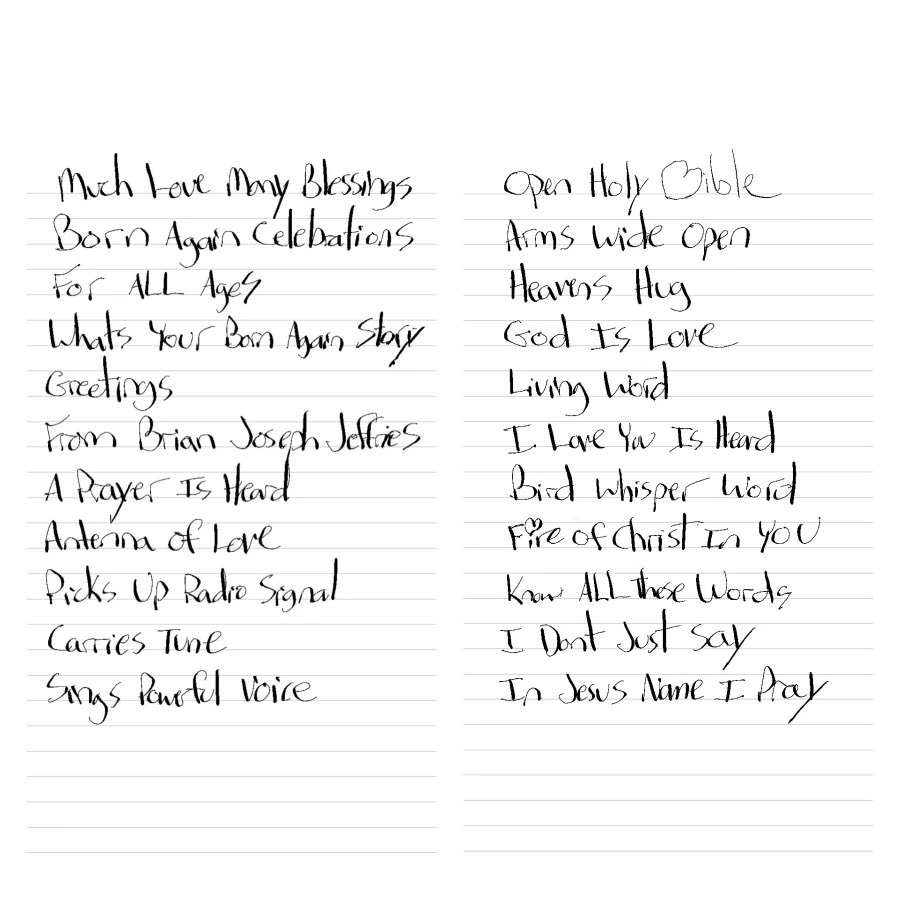 Much Love Many Blessings
Born Again Celebrations
For ALL Ages
Whats Your Born Again Story
Greetings
From Brian Joseph Jeffries
A Prayer Is Heard
Antenna of Love
Picks Up Radio Signal
Carries Tune
Sings Powerful Voice
Open Holy Bible
Arms Wide Open
Heavens Hug
God Is Love
Living Word
I Love You Is Heard
Bird Whisper Word
Fire of Christ In YOU
Know ALL These Words
I Dont Just Say
In Jesus Name I Pray